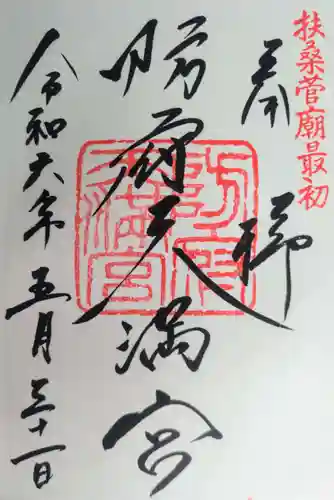 扶桑菅廟最初
奉拝
防府天満宮
令和六年五月三十一日
防府天満宮